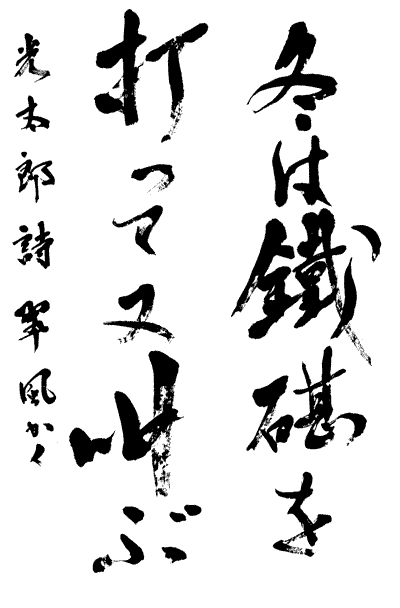 冬は鐵碪を
打って又叫ぶ
光太郎詩 翠風かく